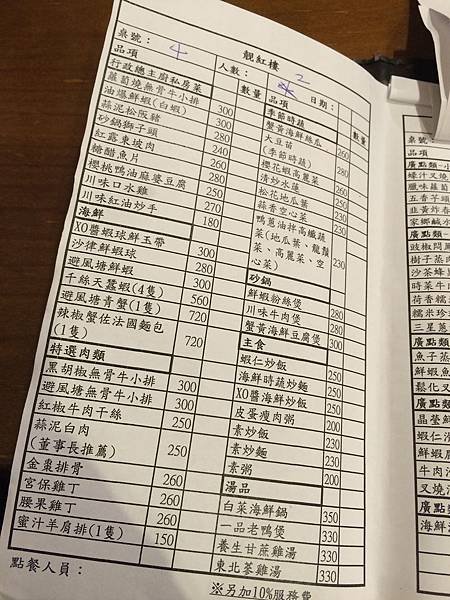 靚紅樓
桌號： 4 人數： 2 日期：
品項 數量
行政總主廚私房菜
蘿蔔燒無骨牛小排
油爆鮮蝦(白蝦) 300
蒜泥松阪豬 300
砂鍋獅子頭 280
紅露東坡肉 240
糖醋魚片 260
櫻桃鴨油麻婆豆腐 280
川味口水雞 250
川味紅油炒手 270
海鮮 180
XO醬蝦球鮮玉帶
沙律鮮蝦球 300
避風塘鮮蝦 280
千絲天蠶蝦(4隻) 300
避風塘青蟹(1隻) 560
辣椒蟹佐法國麵包 720
(1隻) 720
特選肉類
黑胡椒無骨牛小排
避風塘無骨牛小排 300
紅椒牛肉干絲 300
蒜泥白肉 250
(董事長推薦) 250
金棗排骨
宮保雞丁 260
腰果雞丁 260
蜜汁羊肩排(1隻) 260
150
點餐人員：
品項 數量
季節時蔬
蟹黃海鮮絲瓜
大豆苗 260
(季節時蔬)
櫻花蝦高麗菜 280
清炒水蓮 260
松花地瓜葉 250
蒜香空心菜 250
鴨蔥油拌高纖蔬 230
菜(地瓜葉、龍鬚
菜、高麗菜、空 230
心菜)
砂鍋
鮮蝦粉絲煲
川味牛肉煲 280
蟹黃海鮮豆腐煲 280
主食 300
蝦仁炒飯
海鮮時蔬炒麵 250
XO醬海鮮炒飯 250
皮蛋瘦肉粥 250
素炒飯 200
素炒麵 230
素粥 230
湯品 200
白菜海鮮鍋
一品老鴨煲 350
養生甘蔗雞湯 330
東北荖雞湯 330
330
※另加10%服務費
桌號：
品項
廣點類-
蠔汁叉燒
臘味蘿蔔
五香芋頭
韭黃炸春
家鄉鹹水
廣點類-
豉椒
樹子蒸肉
沙茶蜂
時菜牛肉
荷香糯
糯米珍
三星蔥
廣點類
魚子蒸
鮮蝦
鬆化叉
廣點類
晶瑩鮮
蝦仁
鮮蝦
牛肉
叉燒
海鮮